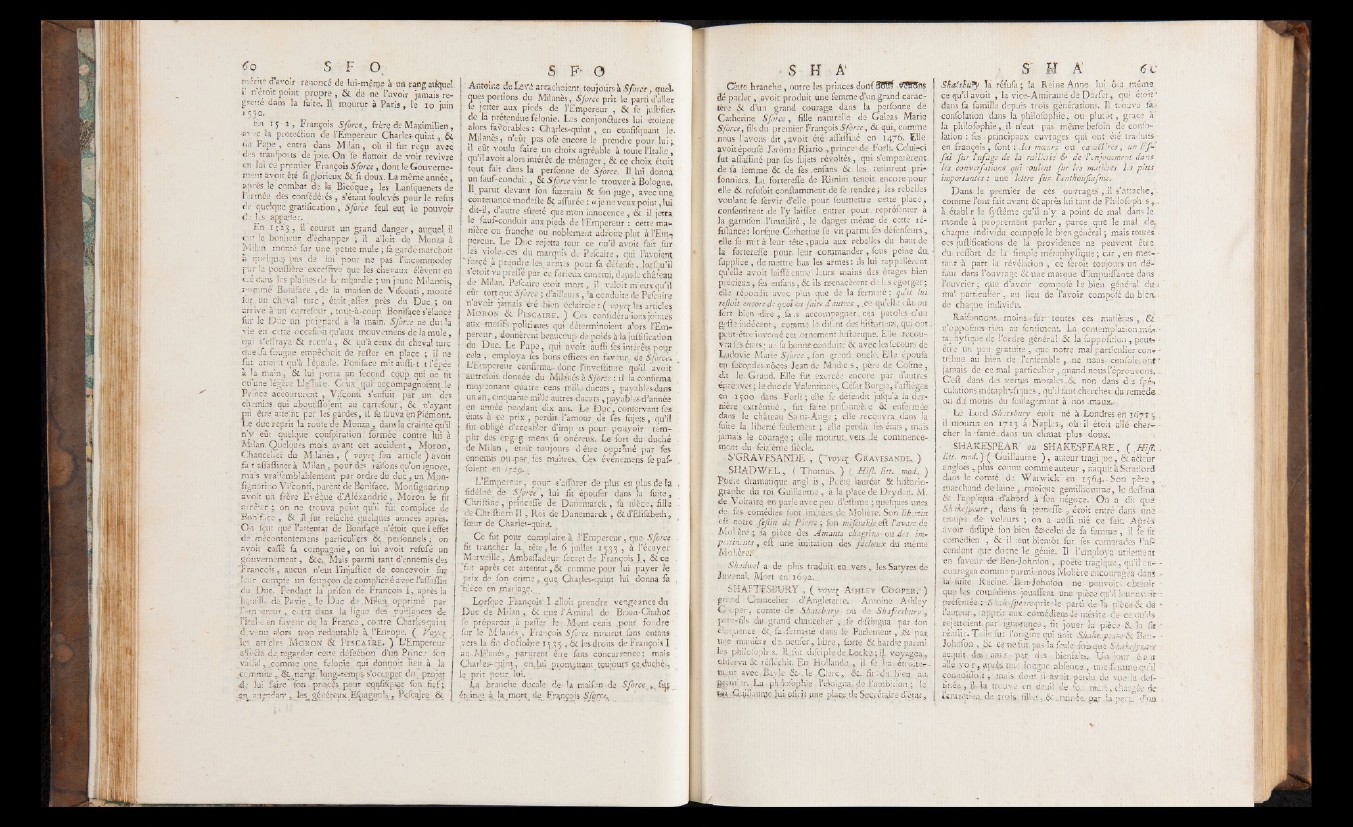 60 S F O
mérite d'avoir renoncé de lui-même à un rang auquel
il n'étoit point propre, & de ne l'avoir jamais re-
gretté dans la suite. Il mourut à Paris, le 10 juin
1530.
François Sforce, frère de Maximilien,
avec la protection de l'Empereur Charles-quint, &
du Pape, entra dans Milan, où il fut reçu avec
des transports de joie. On se flattoit de voir revivre
en lui ce premier François Sforce, dont le Gouverne-
ment avoit été si glorieux & si doux. La même année,
après le combat de la Bicoque, les Lansquenets de
l'armée des confédérés, s'étant soulevés pour le refus
de quelque gratification, Sforce seul eut le pouvoir
de les appaiser.
En 1523, il courut un grand danger, auquel il
eut le bonheur d'échapper; il alloit de Monza à
Milan monté sur une petite mule; sa garde marchoit
à quelques pas de lui pour ne pas l'incommoder
par la poussière excessive que les chevaux élèvent en
été dans les plaines de Lombardie; un jeune Milanois,
nommé Boniface, de la maison de Visconti, monté
sur un cheval turc, étoit assez près du Duc; on
arrive à un carrefour, tout-à-coup Boniface s'élance
sur le Duc un poignard à la main. Sforce ne dut la
vie en cette occasion qu'aux mouvemens de la mule,
qui s'effraya & recula, & qu'à ceux du cheval turc
que sa fougue empêchoit de rester en place; il ne
fut atteint qu'à l'épaule. Boniface mit aussi-tôt l'épée
à la main, & lui porta un second coup qui ne fit
qu'une légère blessure. Ceux qui accompagnoient le
Prince accoururent, Visconti s'enfuit par un des
chemins qui aboutissoient au carrefour, & n'ayant
pu être atteint par les gardes, il se sauva en Piémont.
Le duc reprit la route de Monza, dans la crainte qu'il
n'y eût quelque conspiration formée contre lui à
Milan. Quelques mois avant cet accident, Moron,
Chancelier du Milanès, (voyez son article) avoit
fait assassiner à Milan, pour des raisons qu'on ignore,
mais vraisemblablement par ordre du duc, un Mon-
signorino Visconti, parent de Boniface. Monsignorino
avoit un frère Evêque d'Aléxandrie, Moron le fit
arrêter; on ne trouva point qu'il fût complice de
Boniface, & il fut relâché quelques années après.
On sçut que l'attentat de Boniface n'étoit que l'effet
de mécontentemens particuliers & personnels; on
avoit cassé sa compagnie, on lui avoit refusé un
gouvernement, &c. Mais parmi tant d'ennemis des
François, aucun n'eut l'injustice de concevoir sur
leur compte un soupçon de complicité avec l'assassin
du Duc. Pendant la prison de François I, après la
bataille de Pavie, le Duc de Milan opprimé par
l'Empereur, entra dans la ligue des puissances de
l'Italie en faveur de la France, contre Charles-quint
devenu alors trop redoutable à l'Europe. (Voyez
les articles MORON & PESCAIRE.) L'Empereur
affecta de regarder cette défection d'un Prince son
vassal, comme une felonie qui donnoit lieu à la
commise, & parut long-temps s'occuper du projet
de lui faire son procès pour confisquer son fief;
en attendant, les généraux Espagnols, Pescaire &
S F O
Antoine de Leve arrachoient toujours à Sforce, quel-
ques portions du Milanès, Sforce prit le parti d'aller
se jetter aux pieds de l'Empereur, & se justifier
de la prétendue felonie. Les conjonctures lui étoient
alors favorables: Charles-quint, en confisquant le
Milanès, n'eût pas osé encore le prendre pour lui;
il eût voulu faire un choix agréable à toute l'Italie,
qu'il avoit alors intérêt de ménager, & ce choix étoit
tout fait dans la personne de Sforce. Il lui donna
un sauf-conduit, & Sforce vint le trouver à Bologne.
Il parut devant son suzerain & son juge, avec une
contenance modeste & assurée: « je ne veux point, lui
dit-il, d'autre sûreté que mon innocence, & il jetta
le sauf-conduit aux pieds de l'Empereur: cette ma-
nière ou franche ou noblement adroite plut à l'Em-
pereur. Le Duc rejetta tout ce qu'il avoit fait sur
les violences du marquis de Pescaire, qui l'avoient
forcé à prendre les armes pour sa défense, lorsqu'il
s'étoit vu pressé par ce furieux ennemi, dans le château
de Milan. Pescaire étoit mort, il valoit mieux qu'il
eût tort que Sforce; d'ailleurs, la conduite de Pescaire
n'avoit jamais été bien éclaircie: (voyez les articles
MORON & PESCAIRE.) Ces considérations jointes
aux motifs politiques qui déterminoient alors l'Em-
pereur, donnèrent beaucoup de poids à la justification
du Duc. Le Pape, qui avoit aussi ses intérêts pour
cela, employa ses bons offices en faveur de Sforce.
L'Empereur confirma donc l'investiture qu'il avoit
autrefois donnée du Milanès à Sforce: il la confirma
moyennant quatre cens mille ducats, payables dans
un an, cinquante mille autres ducats, payables d'année
en année pendant dix ans. Le Duc, conservant ses
états à ce prix, perdit l'amour de ses sujets, qu'il
fut obligé d'accabler d'impôts pour pouvoir rem-
plir des engagemens si onéreux. Le sort du duché
de Milan, étoit toujours d'être opprimé par ses
ennemis ou par ses maîtres. Ces événemens se pas-
soient en 1529.
L'Empereur, pour s'assurer de plus en plus de la
fidélité de Sforce, lui fit épouser dans la suite,
Christine, princesse de Danemarck, sa nièce, fille
de Christiern II, Roi de Danemarck, & d'Elisabeth,
sœur de Charles-quint.
Ce fut pour complaire à l'Empereur, que Sforce
fit trancher la tête, le 6 juillet 1533, à l'écuyer
Merveille, Ambassadeur secret de François I, & ce
fut après cet attentat, & comme pour lui payer le
prix de son crime, que Charles-quint lui donna sa
nièce en mariage.
Lorsque François I alloit prendre vengeance du
Duc de Milan, & que l'Amiral de Brion-Chabot
se préparoit à passer le Mont-cenis pour fondre
sur le Milanès, François Sforce mourut sans enfans
vers la fin d'octobre 1535, & les droits de François I
au Milanès, parurent être sans concurrence; mais
Charles-quint, en lui promettant toujours ce duché,
le prit pour lui.
La branche ducale de la maison de Sforce, fut
éteinte à la mort de François Sforce.
S H A
Cette branche, outre les princes dont nous venons
de parler, avoit produit une femme d'un grand carac-
tère & d'un grand courage dans la personne de
Catherine Sforce, fille naturelle de Galéas Marie
Sforce, fils du premier François Sforce, & qui, comme
nous l'avons dit, avoit été assassiné en 1476. Elle
avoit épousé Jérôme Riario, prince de Forli. Celui-ci
fut assassiné par ses sujets révoltés, qui s'emparèrent
de sa femme & de ses enfans & les retinrent pri-
sonniers. La forteresse de Rimini tenoit encore pour
elle & refusoit constamment de se rendre; les rebelles
voulant se servir d'elle pour soumettre cette place,
consentirent de l'y laisser entrer pour représenter à
la garnison l'inutilité, le danger même de cette ré-
sistance: lorsque Catherine se vit parmi ses défenseurs,
elle se mit à leur tête, parla aux rebelles du haut de
la forteresse pour leur commander, sous peine du
supplice, de mettre bas les armes: ils lui rappellèrent
qu'elle avoit laissé entre leurs mains des ôtages bien
précieux, ses enfans, & ils menacèrent de les égorger;
elle répondit avec plus que de la fermeté: qu'il lui
restoit encore de quoi en faire d'autres, ce qu'elle eût ou
fort bien dire, sans accompagner ces paroles d'un
geste indécent, comme le disent des historiens, qui ont
peut-être inventé cet ornement historique. Elle recou-
vra les états; sa bonne conduite & avec les secours de
Ludovic Marie Sforce, son grand oncle. Elle épousa
en secondes nôces Jean de Médicis, père de Cosme,
dit le Grand. Elle fut exercée encore par d'autres
épreuves; le duc de Valentinois, César Borgia, l'assiégea
en 1500 dans Forli; elle se défendit jusqu'à la der-
nière extrémité, fut faite prisonnière & enfermée
dans le château Saint-Ange; elle recouvra dans la
suite sa liberté seulement; elle perdit ses états, mais
jamais le courage; elle mourut vers le commence-
ment du seizième siècle.
S'GRAVESANDE, (voyez GRAVESANDE.)
SHADWEL, (Thomas.) (Hist. litt. mod.)
Poëte dramatique anglois, Poëte lauréat & historio-
graphe du roi Guillaume, à la place de Dryden. M.
de Voltaire en parle avec peu d'estime; quelques unes
de ses comédies sont imitées de Molière. Son libertin
est notre festin de Pierre; son misérable est l'avare de
Molière; sa pièce des Amants chagrins ou des im-
pertinents, est une imitation des fâcheux du même
Molière.
Shadwel a de plus traduit en vers, les Satyres de
Juvenal. Mort en 1692.
SHAFTESBURY, (voyez ASHLEY COOPER.)
grand Chancelier d'Angleterre. Antoine Ashley
Cooper, comte de Shatsbury ou de Shaftersbury,
petit-fils du grand chancelier, se distingua par son
éloquence & sa fermeté dans le Parlement, & par
une manière de penser, libre, forte & hardie parmi
les philosophes. Il fut disciple de Locke; il voyagea,
observa & réfléchit. En Hollande, il se lia étroite-
ment avec Bayle & le Clerc, & fit du bien au
premier. La philosophie l'éloigna de l'ambition; le
roi Guillaume lui offrit une place de Secrétaire d'état,
S H A 61
Shatsbury la refusa; la Reine Anne lui ôta même
ce qu'il avoit, la vice-Amirauté de Dorset, qui étoit
dans sa famille depuis trois générations. Il trouva sa
consolation dans la philosophie, ou plutôt, grace à
la philosophie, il n'eut pas même besoin de conso-
lation: ses principaux ouvrages qui ont été traduits
en françois, sont: les mœurs ou caractères, un Es-
sai sur l'usage de la raillerie & de l'enjouement dans
les conversations qui roulent sur les matières les plus
importantes: une lettre sur l'enthousiasme.
Dans le premier de ces ouvrages, il s'attache,
comme l'ont fait avant & après lui tant de Philosophes,
à établir le système qu'il n'y a point de mal dans le
monde à proprement parler, parce que le mal de
chaque individu compose le bien général; mais toutes
ces justifications de la providence ne peuvent être
du ressort de la simple métaphysique; car, en met-
tant à part la révélation, ce seroit toujours un dé-
faut dans l'ouvrage & une marque d'impuissance dans
l'ouvrier, que d'avoir composé le bien général du
mal particulier, au lieu de l'avoir composé du bien
de chaque individu.
Raisonnons moins sur toutes ces matières, &
n'opposons rien au sentiment. La contemplation mé-
taphysique de l'ordre général & la supposition, peut-
être un peu gratuite, que notre mal particulier con-
tribue au bien de l'ensemble, ne nous consoleront
jamais de ce mal particulier, quand nous l'éprouvons.
C'est dans des vertus morales & non dans des spé-
culations métaphysiques, qu'il faut chercher du remède
ou du moins du soulagement à nos maux.
Le Lord Shatsbury étoit né à Londres en 1671;
il mourut en 1713 à Naples, où il étoit allé cher-
cher la santé dans un climat plus doux.
SHAKESPEAR ou SHAKESPEARE, (Hist.
litt. mod.) (Guillaume), auteur tragique, & acteur
anglois, plus connu comme auteur, naquit à Stratford
dans le comté de Warwick en 1564. Son père,
marchand de laine, quoique gentilhomme, le destina
& l'appliqua d'abord à son négoce. On a dit que
Shakespeare, dans sa jeunesse, étoit entré dans une
troupe de voleurs; on a aussi nié ce fait. Après
avoir dissipé son bien & celui de sa femme, il se fit
comédien, & il eut bientôt sur ses camarades l'as-
cendant que donne le génie. Il l'employa utilement
en faveur de Ben-Johnson, poëte tragique, qu'il en-
couragea comme parmi nous Molière encouragea dans
la suite Racine. Ben-Johnson ne pouvoit obtenir
que les comédiens jouassent une pièce qu'il leur avoit
présentée; Shakespeare prit le parti de la pièce & de
l'auteur, apprit aux comédiens le mérite de ce qu'ils
rejettoient par ignorance, fit jouer la pièce & la fit
réussir. Tel fut l'origine qui unit Shakespeare & Ben-
Johnson, & ce ne fut pas la seule fois que Shakespeare